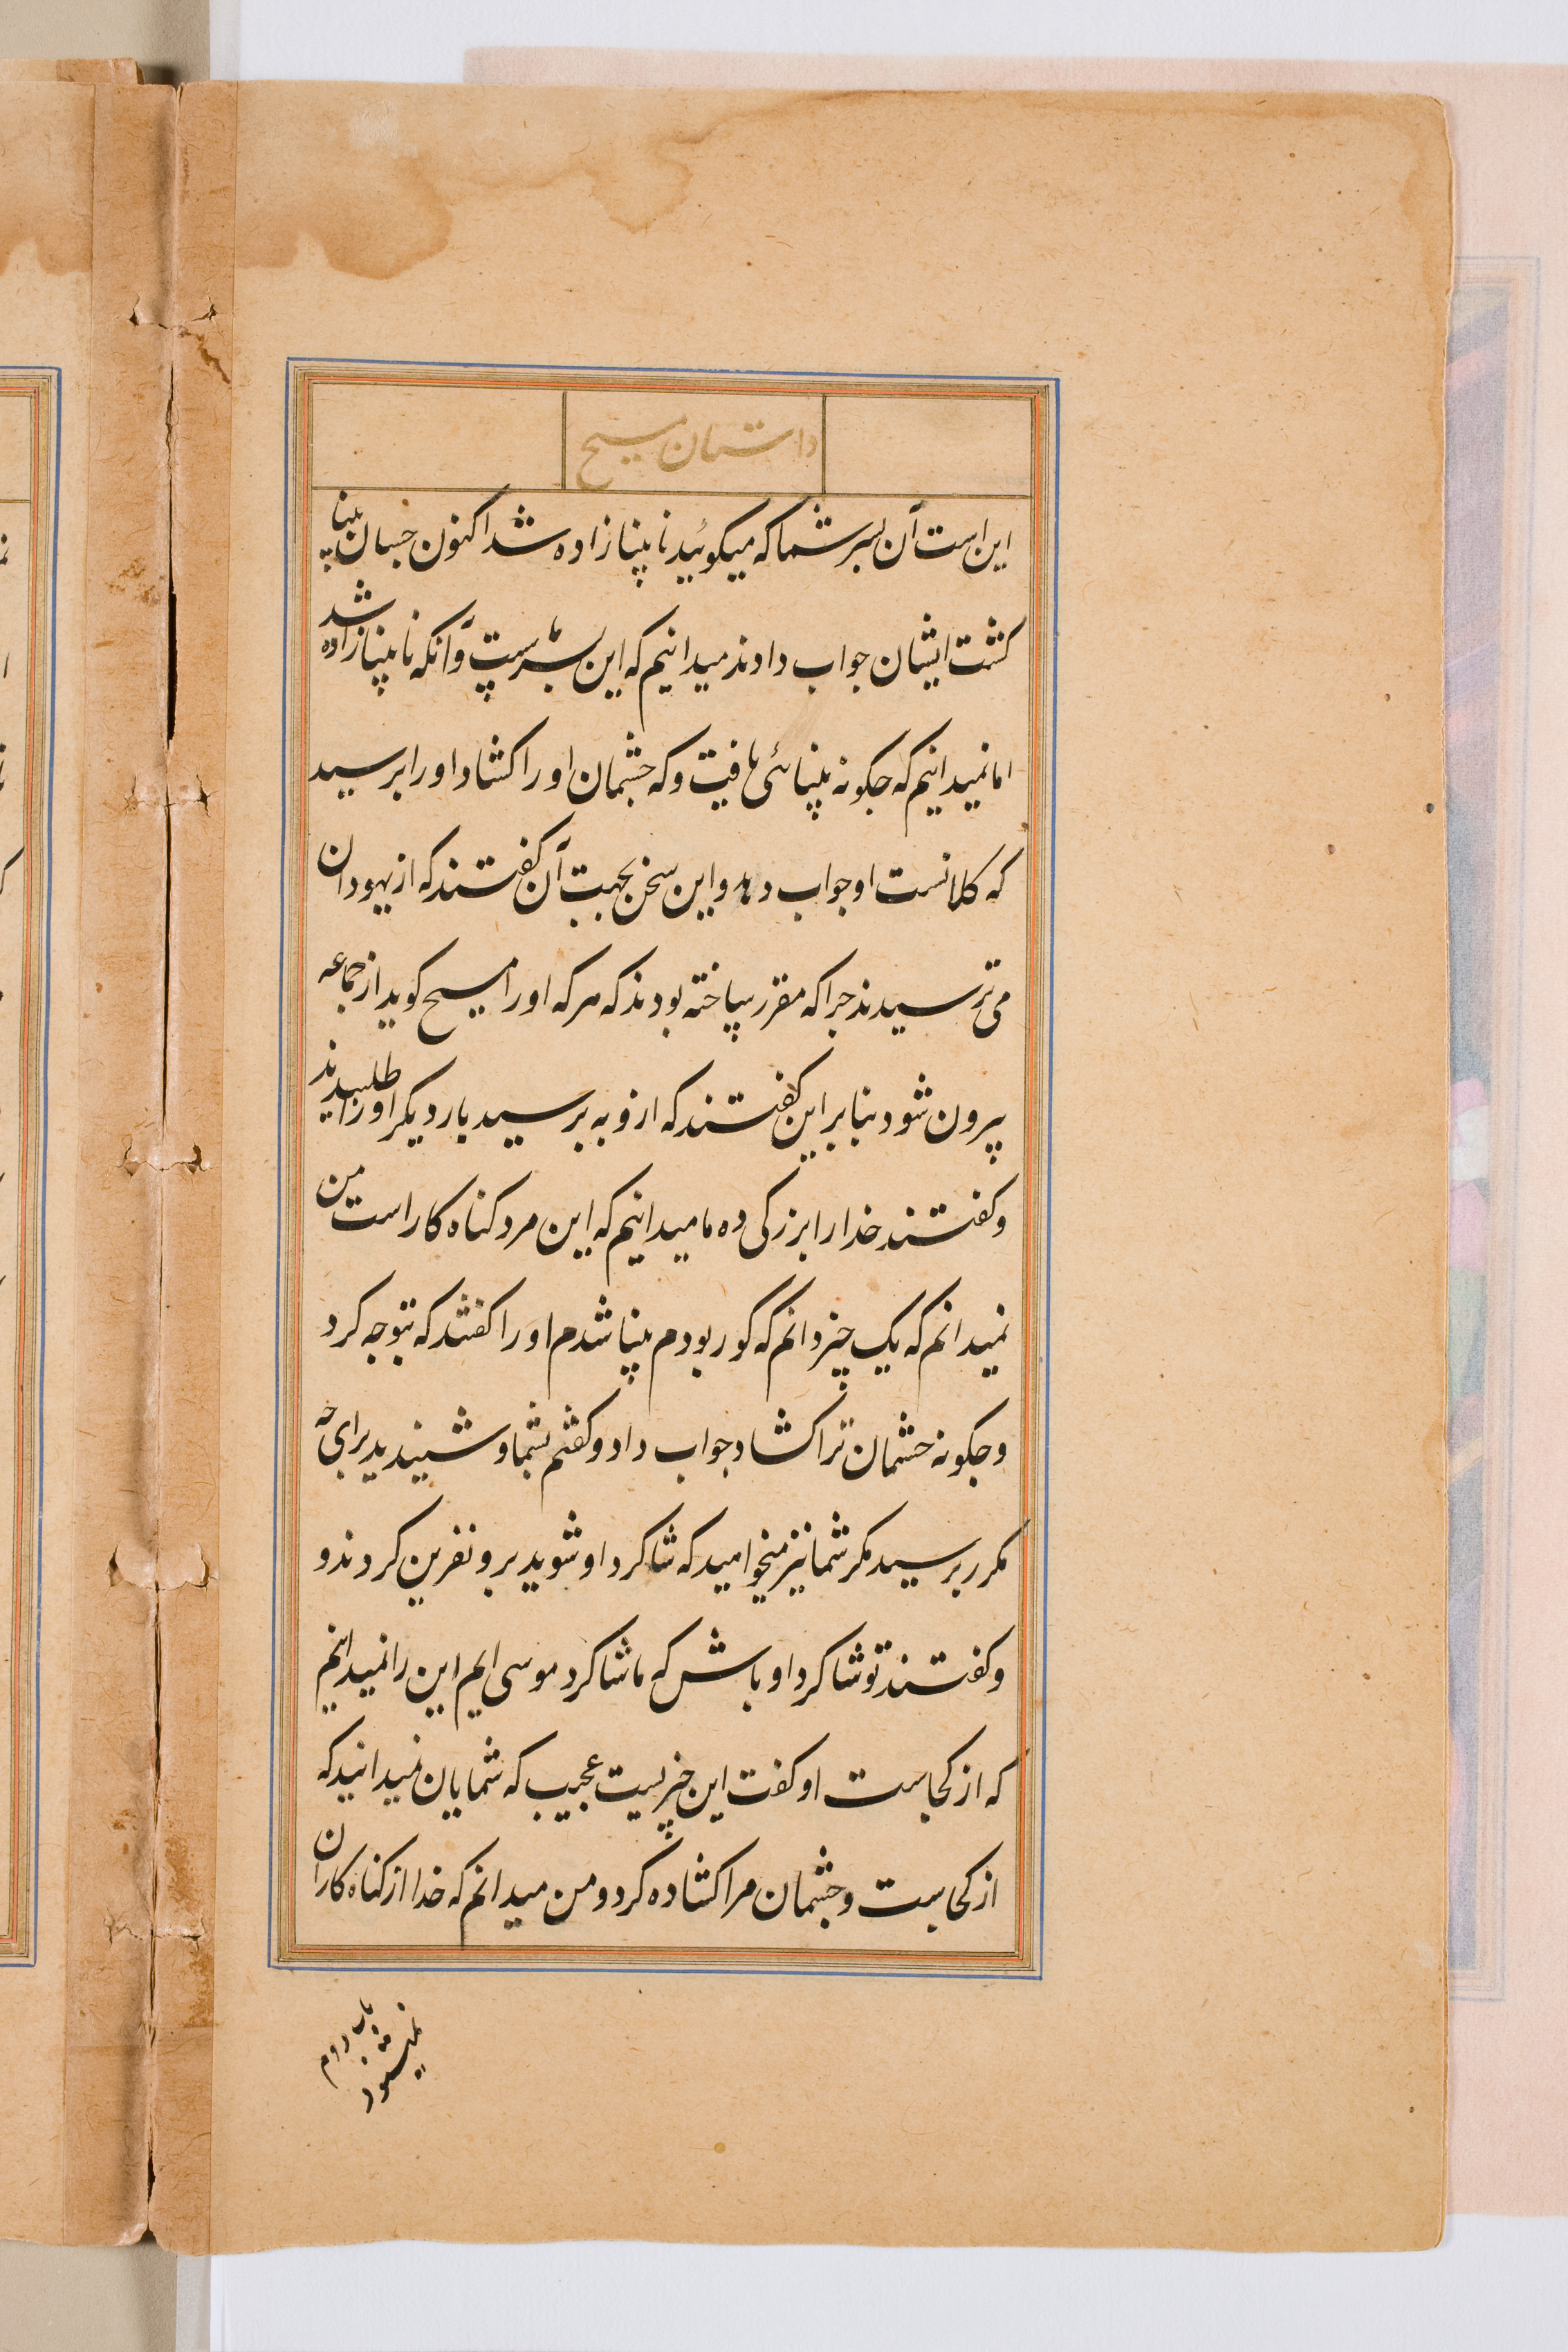 داستان مسیح
این است آن پسر شما که میکوئید نابینا زاده شد اکنون جسان بینا
کشت ایشان جواب دادند میدانیم که این پسر ماست وآنکه نابینا زاده شد
اما نمیدانیم که جکونه بینائی یافت وکه جشمان او را کشاد او را برسید
که کلانست او جواب دهد واین سخن بجهت آن کفتند که از یهودان
می ترسیدند جرا که مقرر ساخته بودند که هر که او را مسیح کوید از جماعه
بیرون شود بنابر این کفتند که ازو به برسید بار دیکر او را طلبیدند
وکفتند خدا را بزرکی ده ما میدانیم که این مرد کناه کار است من
نمیدانم که یک جیز دانم که کور بودم بینا شدم او را کفتند که بتو جه کرد
وجکونه جشمان ترا کشاد جواب داد وکفتم بشما وشنیدید برای جه
مکرر برسید مکر شما نیز میخواهید که شاکرد او شوید برو نفرین کردند و
وکفتند تو شاکرد او باش که ما شاکرد موسی ایم این را نمیدانیم
که از کجاست او کفت این جیزیست عجیب که شمایان نمیدانید که
از کجاست وجشمان مرا کشاده کرد ومن میدانم که خدا از کناه کاران
نمیشنود
باب دوم